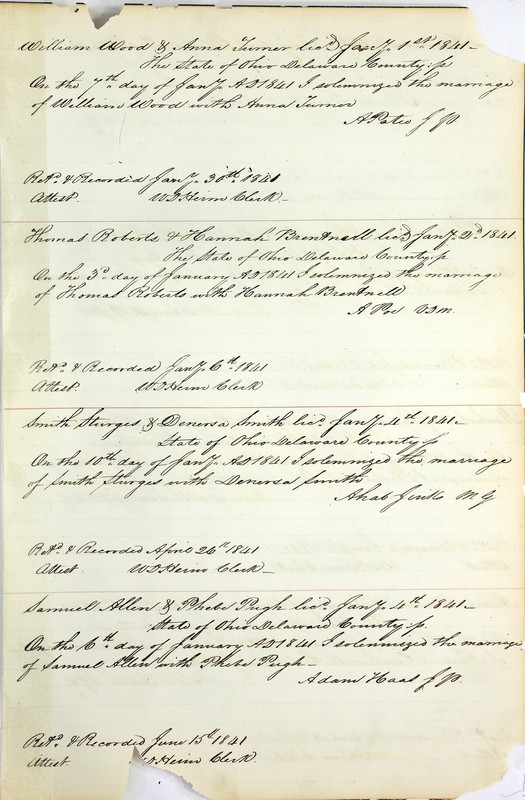 William Wood & Anna Turner licd Jany. 1st 1841-
The State of Ohio Delaware County: ss
On the 7th day of Jany. AD 1841 I solemnized the marriage
of William Wood with Anna Turner
A Pates J P
Retd. & Recorded Jany. 30th 1841
Attest. W D Heim Clerk-
Thomas Roberts & Hannah Brentnell licd Jany. 2d. 1841.
The State of Ohio Delaware County ss
On the 3d day of January AD 1841 I solemnized the marriage
of Thomas Roberts with Hannah Brentnell
A Poe V.D.M.
Retd. & Recorded Jany. 6th. 1841
Attest. W D Heim Clerk
Smith Sturges & Denersa Smith licd. Jany. 4th. 1841-
State of Ohio Delaware County ss
On the 10th day of Jany. AD 1841 I solemnized the marriage
of Smith Sturges with Denersa Smith
Ahab Jinks M G
Retd. & Recorded April 26th 1841
Attest W D Heim Clerk-
Samuel Allen & Phebe Pugh licd. Jany. 4th. 1841-
State of Ohio Delaware County: ss.
On the 6th day of January AD 1841 I solemnized the marriage
of Samuel Allen with Phebe Pugh-
Adam Haas J P.
Retd. & Recorded June 15th 1841
Attest. W D Heim Clerk.